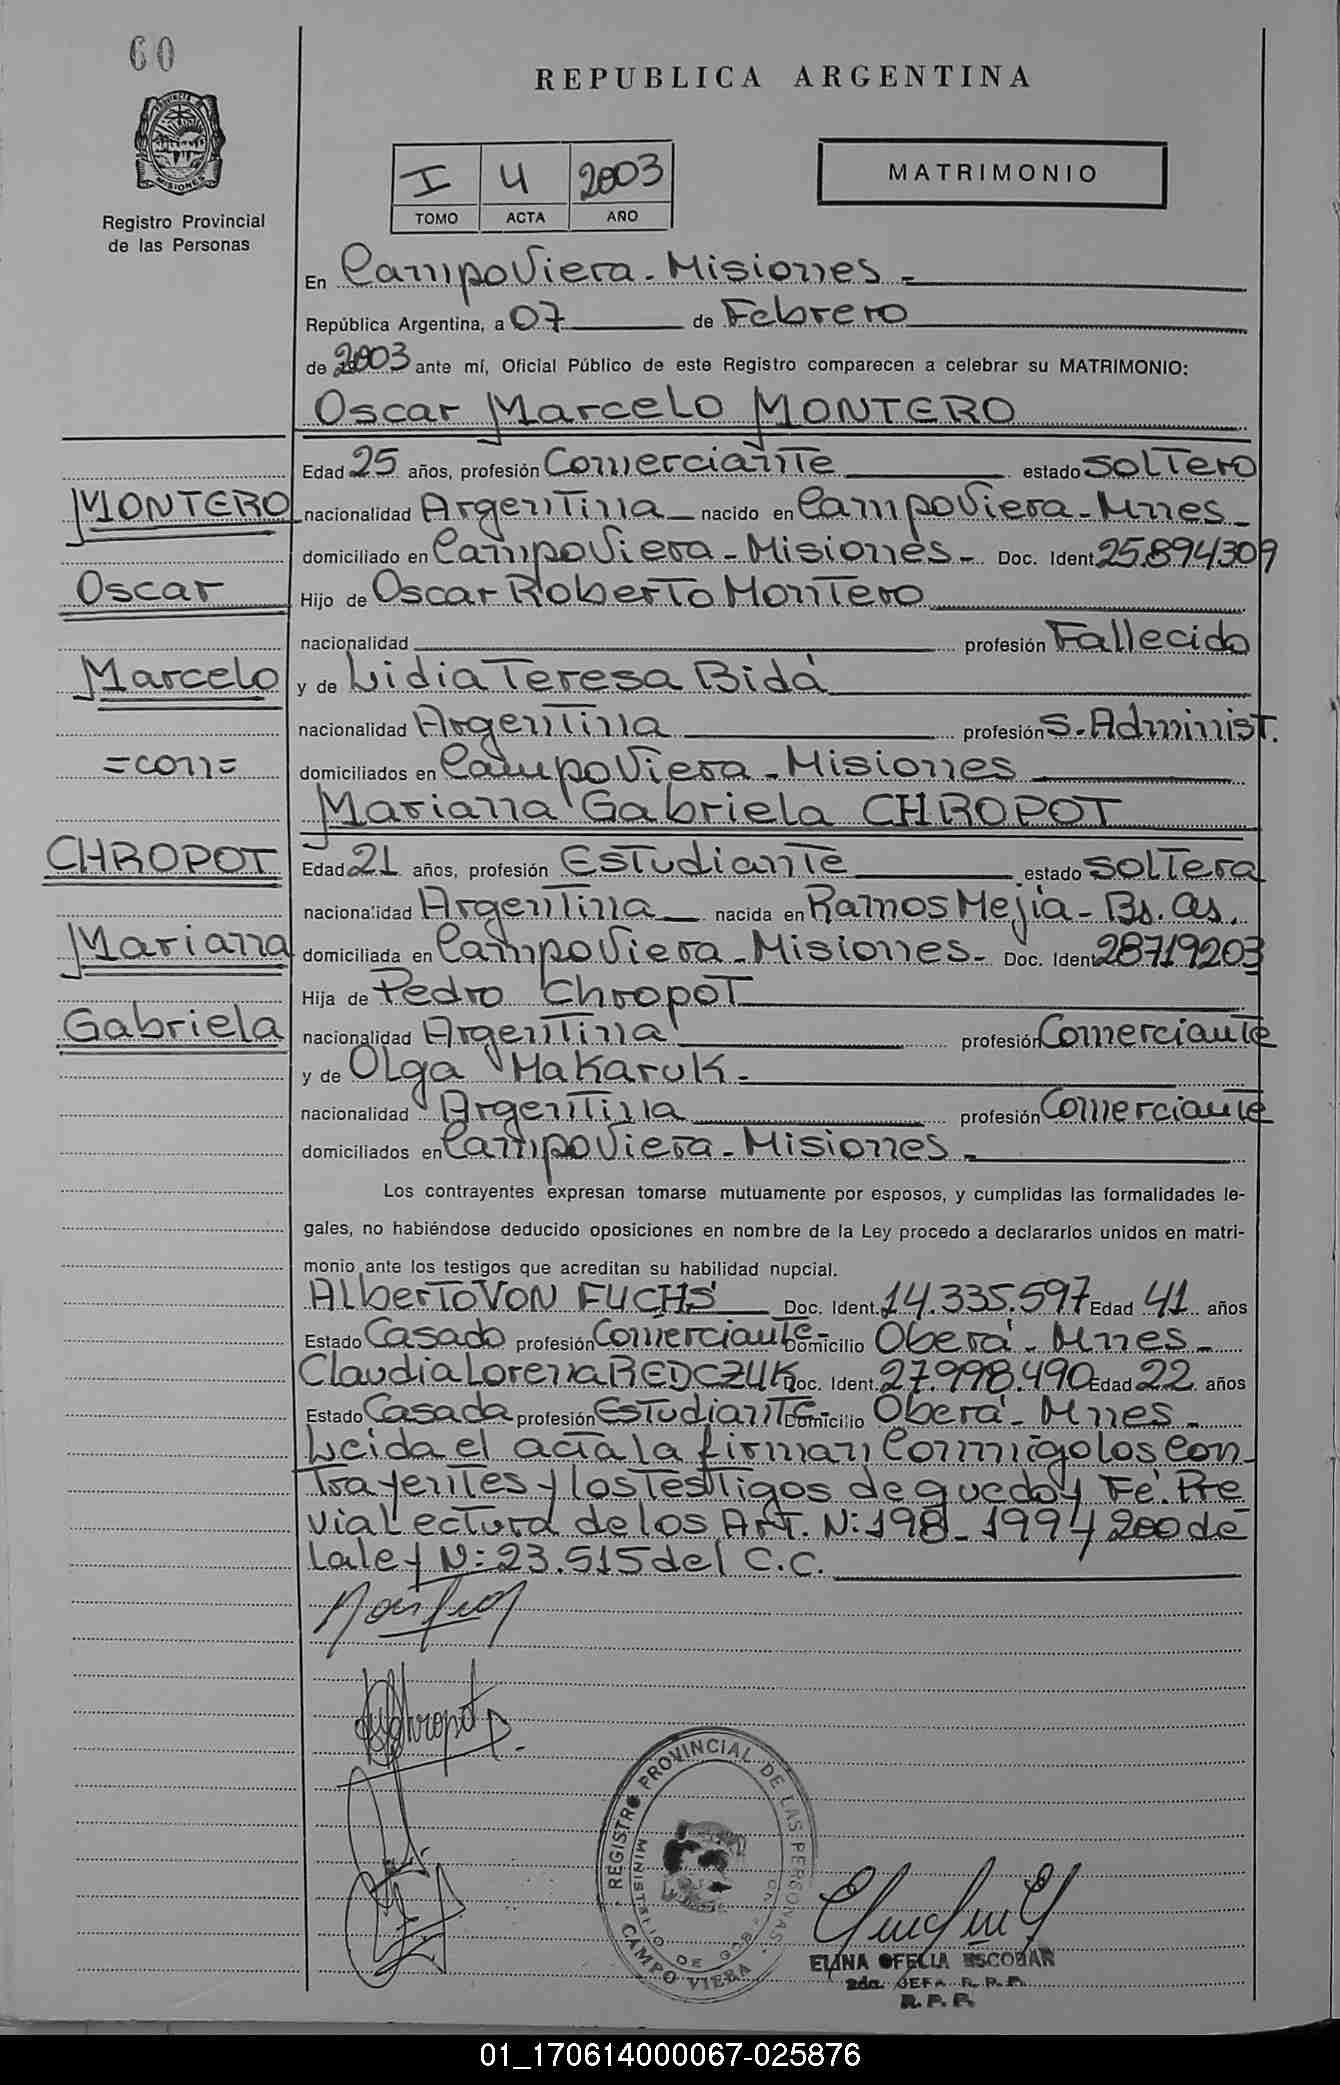 60
REPUBLICA ARGENTINA
PROVINCIA D MISIONES
Registro Provincial
de las Personas
I 4 2003
TOMO ACTA AÑO
MATRIMONIO
En CampoViera - Misiones -
República Argentina, a 07 de Febrero
de 2003 ante mí, Oficial Público de este Registro comparecen a celebrar su MATRIMONIO:
Oscar Marcelo MONTERO
Edad 25 años, profesión Comerciante estado Soltero
MONTERO nacionalidad Argentina - nacido en CampoViera - Mnes -
domiciliado en CampoViera - Misiones - Doc. Ident. 25.894.309
Oscar Hijo de Oscar Roberto Montero
nacionalidad profesión Fallecido
Marcelo y de Lidia Teresa Bidá
nacionalidad Argentina profesión S. Administ.
=con= domiciliados en CampoViera - Misiones
Mariana Gabriela CHROPOT
CHROPOT Edad 21 años, profesión Estudiante estado Soltera
nacionalidad Argentina nacida en Ramos Mejía - Bs. As.
Mariana domiciliada en CampoViera - Misiones - Doc. Ident. 28719203
Hija de Pedro Chropot
Gabriela nacionalidad Argentina profesión Comerciante
y de Olga Makaruk -
nacionalidad Argentina profesión Comerciante
domiciliados en CampoViera - Misiones -
Los contrayentes expresan tomarse mutuamente por esposos, y cumplidas las formalidades le-
gales, no habiéndose deducido oposiciones en nombre de la Ley procedo a declararlos unidos en matri-
monio ante los testigos que acreditan su habilidad nupcial.
Alberto VON FUCHS Doc. Ident. 14.335.597 Edad 41 años
Estado Casado profesión Comerciante - Domicilio Oberá - Mnes -
Claudia Lorena REDCZUK Doc. Ident. 27.998.490 Edad 22 años
Estado Casada profesión Estudiante - Domicilio Oberá - Mnes -
Leida el acta la firman conmigo los con
trayentes y los Testigos de que doy Fé. Pre
via Lectura de los Art. N: 198 - 199 y 200 de
la ley N: 23.515 del C.C.
Chropot
REGISTRO PROVINCIAL DE LAS PERSONAS
MINISTERIO DE GOB
CAMPO VIERA
ELINA OFELIA ESCOBAR
2da. JEFA R. P. P.
R. P. P.
01_170614000067-025876